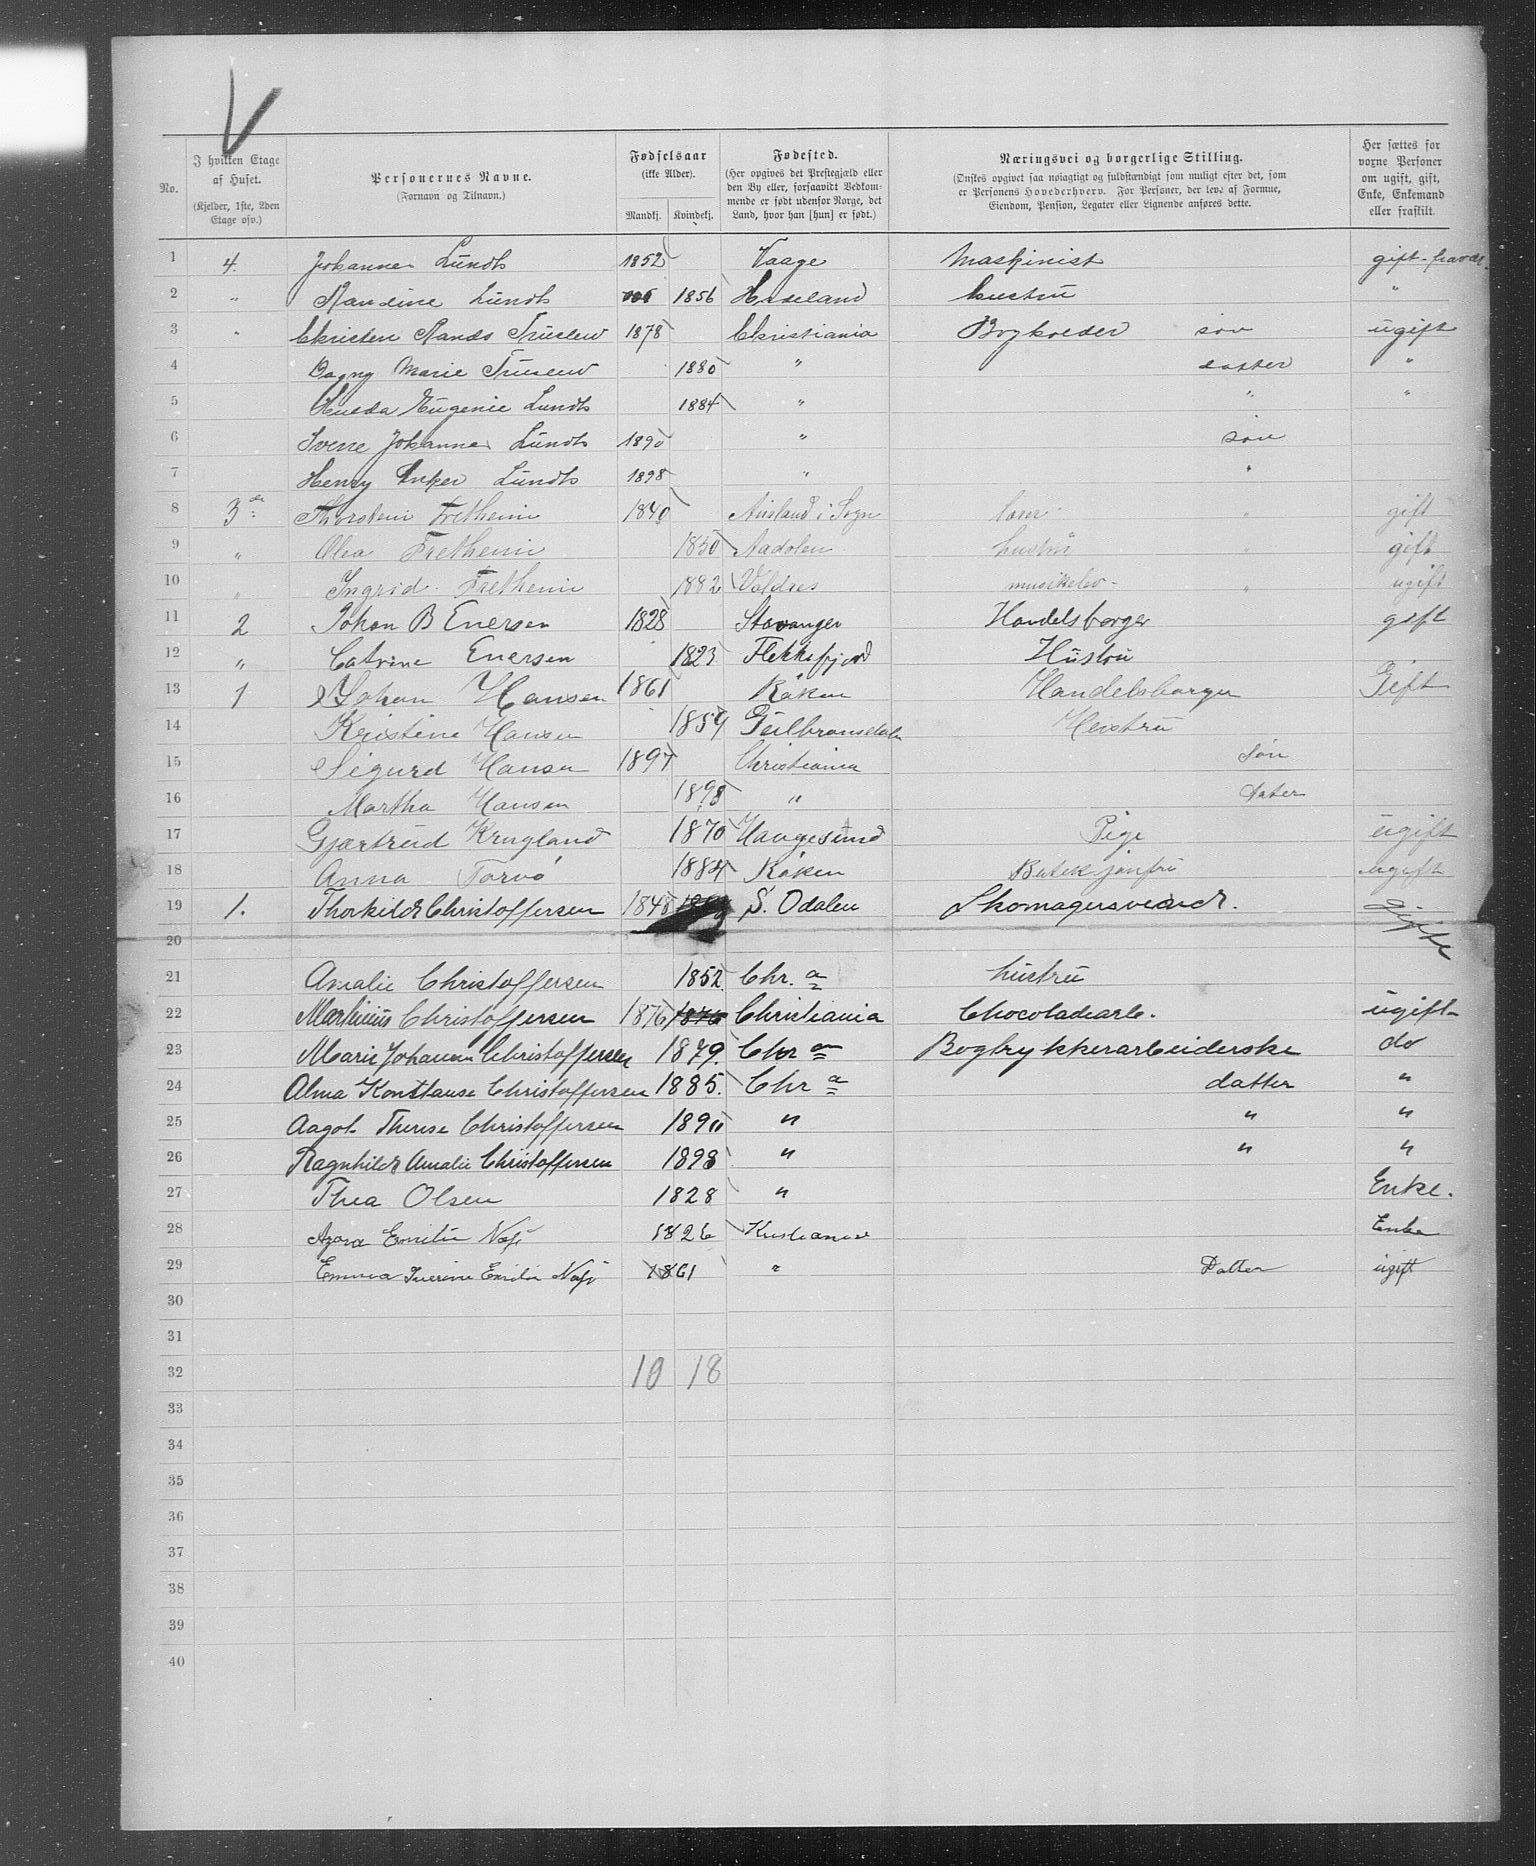 V
No.
I hvilken Etage af Huset.
(Kjelder, 1ste, 2den Etage osv.)
Personernes Navne.
(Fornavn og Tilnavn.)
Fødselsaar
(ikke Alder).
Mandkj. Kvindekj.
Fødested.
(Her opgives det Prestegjæld eller den By eller, forsaavidt Vedkommende er født udenfor Norge, det Land, hvor han [hun] er født.)
Næringsvei og borgerlige Stilling.
(Ønskes opgivet saa nøiagtigt og fuldstændigt som muligt efter det, som er Personens Hovederhverv. For Personer, der leve af Formue, Eiendom, Pension, Legater eller Lignende anføres dette.
Her sættes for voxne Personer om ugift, gift, Enke, Enkemand eller fraskilt.
1 4. Johannes Lundh 1852 Vaage Maskinist gift
2 " Randine Lundh 1856 hustru "
3 " Christen Rands Truelsen 1878 Christiania søn ugift
4 Dagny Marie 1880 " datter "
5 Hulda Eugenie Lundh 1884 " " "
6 Sverre Johannes Lundh 1890 " søn
7 Henry Anker Lundh 1898 " "
8 3de Thorstein Fretheim 1840 Ausland i Sogn " gift
9 " Olea Fretheim 1850 Aadalen hustru " gift
10 " Ingrid Fretheim 1882 Valdres musikelev. " ugift
11 2 Johan B Enersen 1828 Stavanger Handelsborger gift
12 " Catrine Enersen 1823 Flekkefjord Hustru
13 1 Johan Hansen 1861 Røken Handelsborger Gift
14 Kristine Hansen 1859 Gulbransdalen Hustru
15 Sigurd Hansen 1897 Christiania Søn
16 Martha Hansen 1898 " Dater
17 Gjærtrud Krugland 1870 Haugesund Pige ugift
18 Anna Torvø 1884 Røken Butekjomfru ugift
19 1. Thorkild Christoffersen 1848 S. Odalen Skomagersvend. Gifte
20
21 Amalie Christoffersen 1852. Chr.a hustru
22 Marthinius Christoffersen 1876 1876 Christiania Chocoladearb. ugift
23 Marie Johanna Christoffersen 1879. Chr an Bogtrykkerarbeiderske do
24 Alma Konstanse Christoffersen 1885. Chr a datter "
25 Aagot Therese Christoffersen 1890 " " "
26 Ragnhild Amalie Christoffersen 1898 " " "
27 Thea Olsen 1828 " Enke.
28 Emilie 1826 Kristiania Enke
29 Emma Emilie 1861 " Datter ugift
30
31
32 10 18
33
34
35
36
37
38
39
40